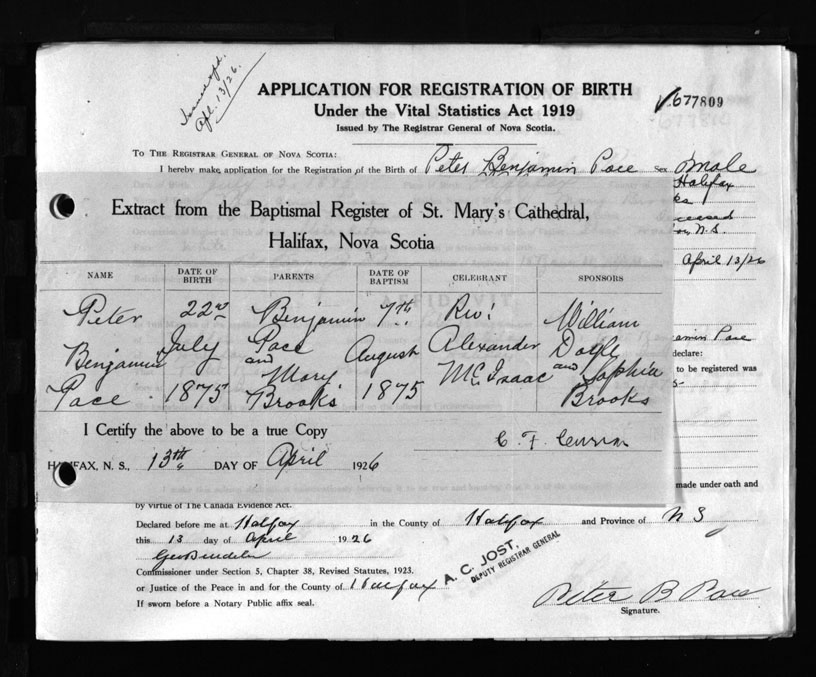 Issued
Apl. 13/26.
APPLICATION FOR REGISTRATION OF BIRTH
Under the Vital Statistics Act 1919
Issued by The Registrar General of Nova Scotia.
677809
TO THE REGISTRAR GENERAL OF NOVA SCOTIA:
I hereby make application for the Registration of the Birth of Peter Benjamin Pace Sex Male
Halifax
ks
deceased
N.S.
April 13/26
Extract from the Baptismal Register of St. Mary's Cathedral,
Halifax, Nova Scotia
NAME DATE OF BIRTH PARENTS DATE OF BAPTISM CELEBRANT SPONSORS
Peter 22nd Benjamin 7th Rev. William
Benjamin July Pace and August Alexander Doyle
Pace 1875 Mary Brooks 1875 McIsaac and Sophia Brooks
amin Pace
declare:
to be registered was
I Certify the above to be a true Copy
C. F. Curran
HALIFAX, N. S., 13th DAY OF April 1926
made under oath and
by virtue of The Canada Evidence Act.
Declared before me at Halifax in the County of Halifax and Province of N S
this 13 day of April 1926
Commissioner under Section 5, Chapter 38, Revised Statutes, 1923.
or Justice of the Peace in and for the County of Halifax
If sworn before a Notary Public affix seal.
A. C. JOST,
DEPUTY REGISTRAR GENERAL
Peter B Pace
Signature.